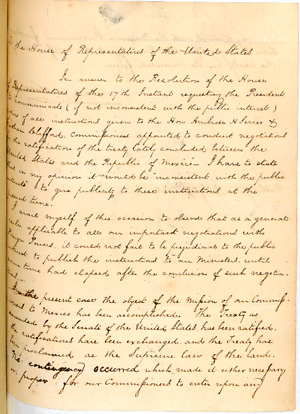 the House of Representatives of the United States
In answer to the Resolution of the House
of Representatives of the 17th Instant requesting the President
to communicate (if not inconsistent with the public interest)
of all instructions given to the Hon Ambrose H Sevier &
Clifford, commissioners appointed to conduct negotiations
the ratification of the treaty lately concluded between the
United States and the Republic of Mexico I have to state
in my opinion it would be inconsistent with the public
to give publicity to these instructions at the
time.
I avail myself of this occasion to observe that as a general
rule applicable to all our important negotiations with
Foreign Powers, it could not fail to be prejudicial to the public
to publish the instructions to our Ministers, until
time had elapsed after the conclusion of such negotia
In the present case the object of the Mission of our Commis
to Mexico has been accomplished. The Treaty as
amended by the Senate of the United States has been ratified.
the ratifications have been exchanged, and the Treaty has
been proclaimed as the Supreme law of the land.
No contingency occurred which made it either necessary
or proper for our Commissioners to enter upon any